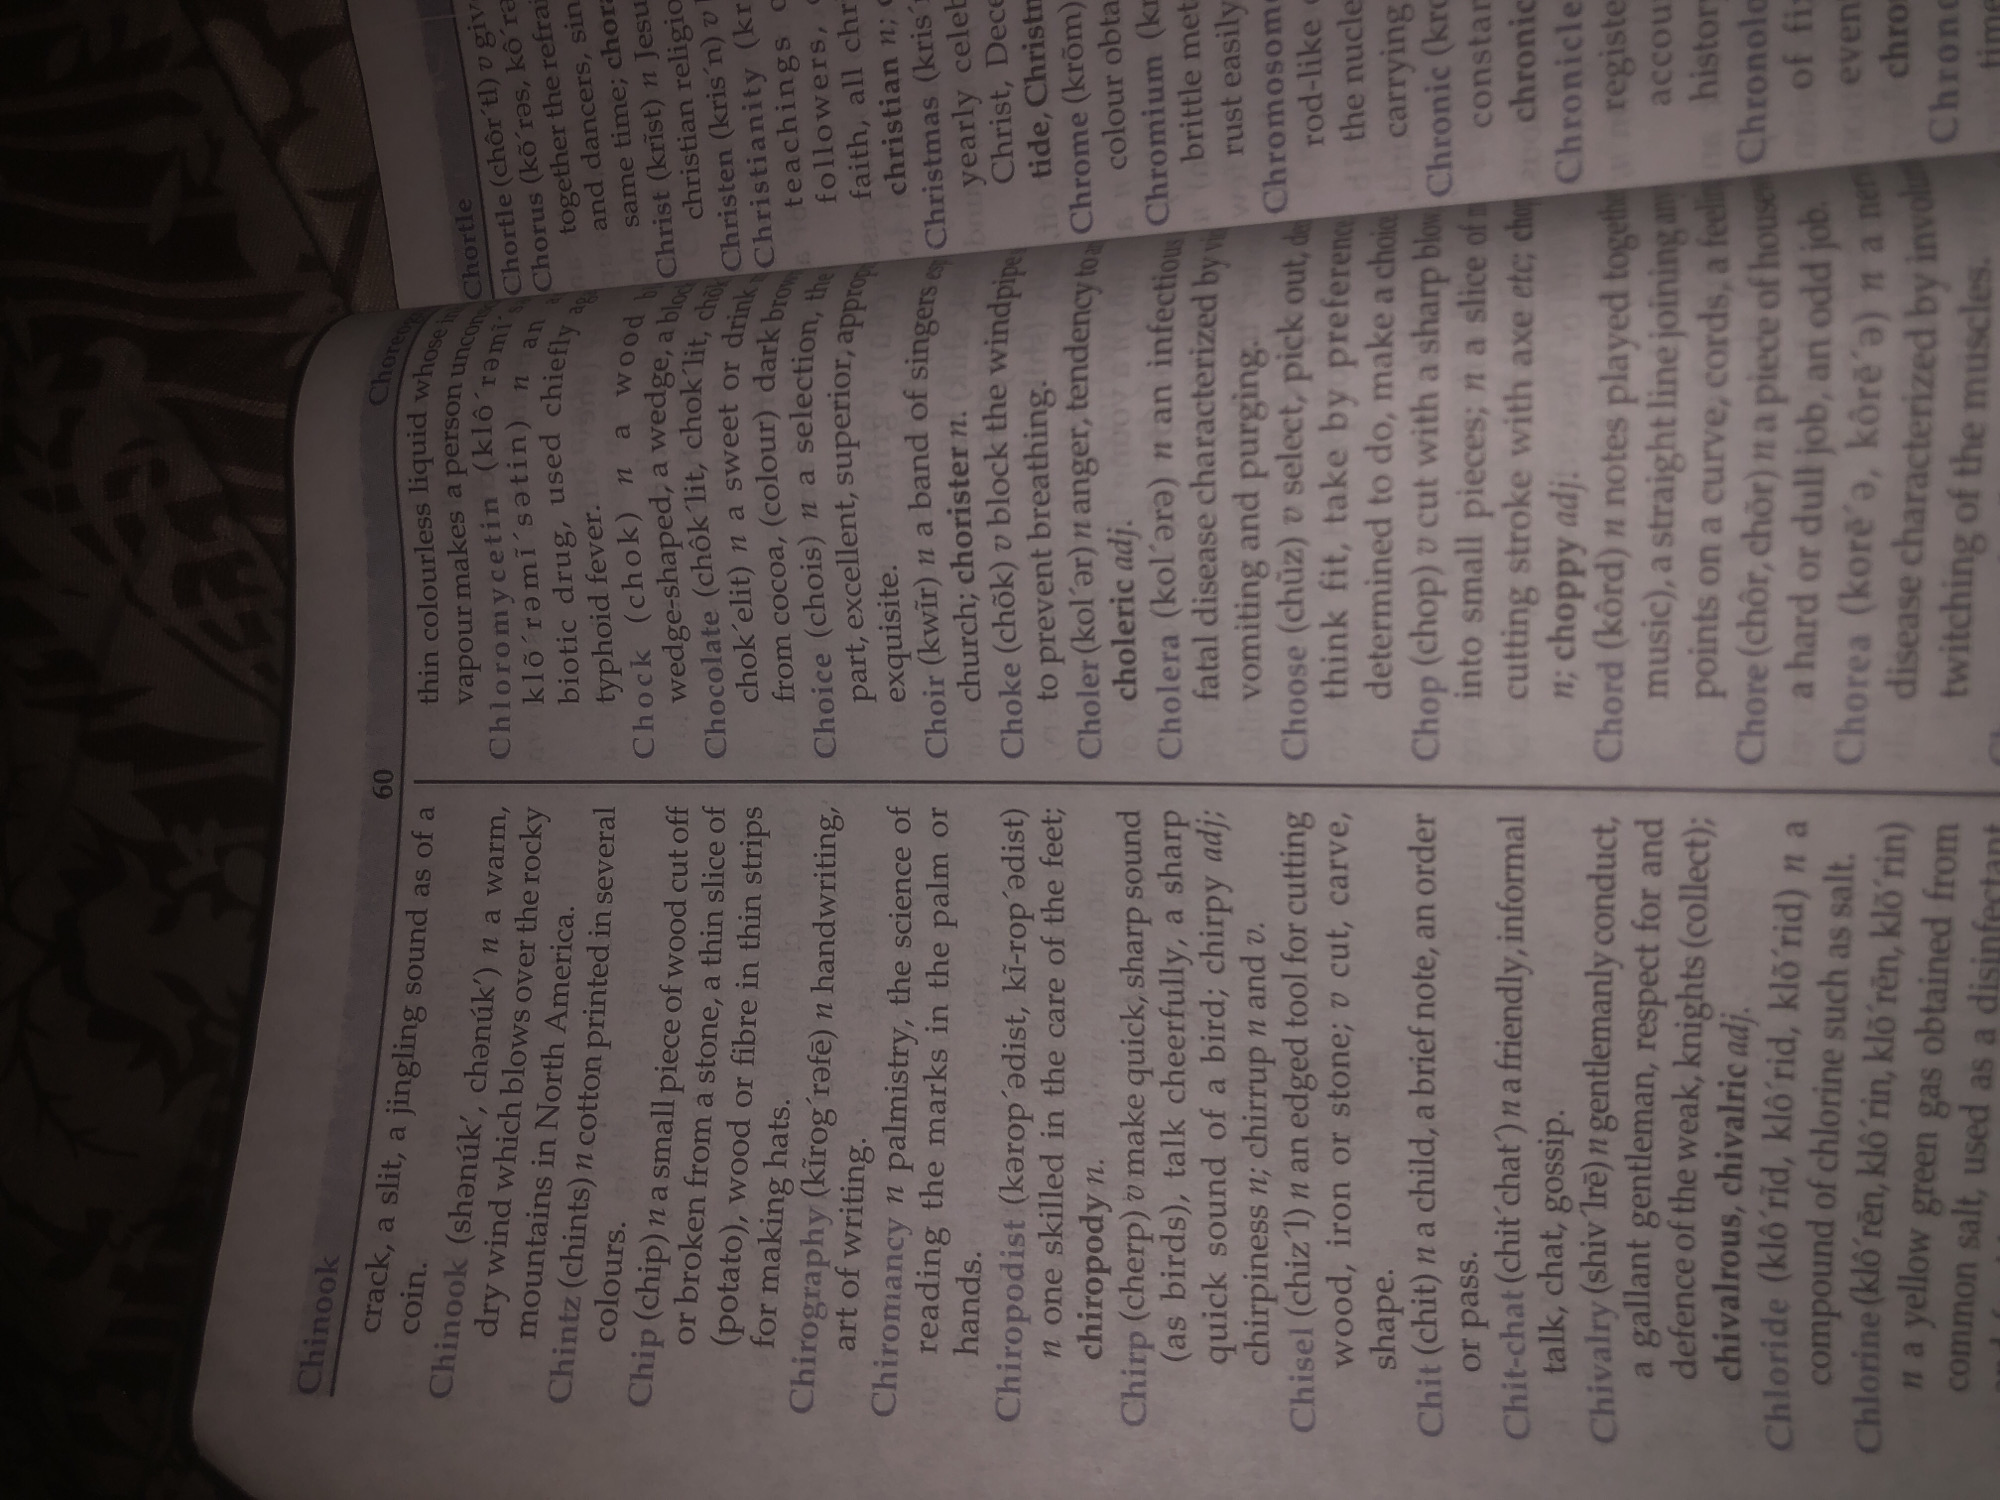 Chinook
60
crack, a slit, a jingling sound as of a
coin.
Chinook (shənúk´, chənúk´) n a warm,
dry wind which blows over the rocky
mountains in North America.
Chintz (chints) n cotton printed in several
colours.
Chip (chip) n a small piece of wood cut off
or broken from a stone, a thin slice of
(potato), wood or fibre in thin strips
for making hats.
Chirography (kĩrog´rəfē) n handwriting,
art of writing.
Chiromancy n palmistry, the science of
reading the marks in the palm or
hands.
Chiropodist (kərop´ədist, kĩ-rop´ədist)
n one skilled in the care of the feet;
chiropody n.
Chirp (cherp) v make quick, sharp sound
(as birds), talk cheerfully, a sharp
quick sound of a bird; chirpy adj;
chirpiness n; chirrup n and v.
Chisel (chiz´l) n an edged tool for cutting
wood, iron or stone; v cut, carve,
shape.
Chit (chit) n a child, a brief note, an order
or pass.
Chit-chat (chit´chat´) n a friendly, informal
talk, chat, gossip.
Chivalry (shiv´lrē) n gentlemanly conduct,
a gallant gentleman, respect for and
defence of the weak, knights (collect);
chivalrous, chivalric adj.
Chloride (klô´rĩd, klô´rid, klō´rid) n a
compound of chlorine such as salt.
Chlorine (klô´rēn, klô´rin, klō´rēn, klō´rin)
n a yellow green gas obtained from
common salt, used as a disinfectant
thin colourless liquid whose
vapour makes a person
Chloromycetin (klô´rəmĩ´
klō´rəmĩ´sətin) n an
biotic drug, used chiefly
typhoid fever.
Chock (chok) n a wood
wedge-shaped, a wedge, a
Chocolate (chôk´lit, chok´lit,
chok´elit) n a sweet or drink
from cocoa, (colour) dark
Choice (chois) n a selection, the
part, excellent, superior,
exquisite.
Choir (kwĩr) n a band of singers
church; chorister n.
Choke (chōk) v block the windpipe
to prevent breathing.
Choler (kol´ər) n anger, tendency to
choleric adj.
Cholera (kol´ərə) n an infectious
fatal disease characterized by
vomiting and purging.
Choose (chūz) v select, pick out,
think fit, take by
determined to do, make a
Chop (chop) v cut with a sharp
into small pieces; n a slice of
cutting stroke with axe etc;
n; choppy adj.
Chord (kôrd) n notes played
music), a straight line joining
points on a curve, cords, a
Chore (chôr, chōr) n a piece of
a hard or dull job, an odd job.
Chorea (korē´ə, kôrē´ə) n a
disease characterized by
twitching of the muscles.
Chortle
Chortle (chôr´tl) v
Chorus (kō´rəs,
together the
and dancers,
same time;
Christ (krĩst) n
christian
Christen (kris´n) v
Christianity
teachings
followers,
faith, all
christian n;
Christmas
yearly
Christ,
tide,
Chrome (krōm)
colour
Chromium
brittle
rust easily
Chromosome
rod-like
the
carrying
Chronic
constant
chronic
Chronicle
history
of
chro
time